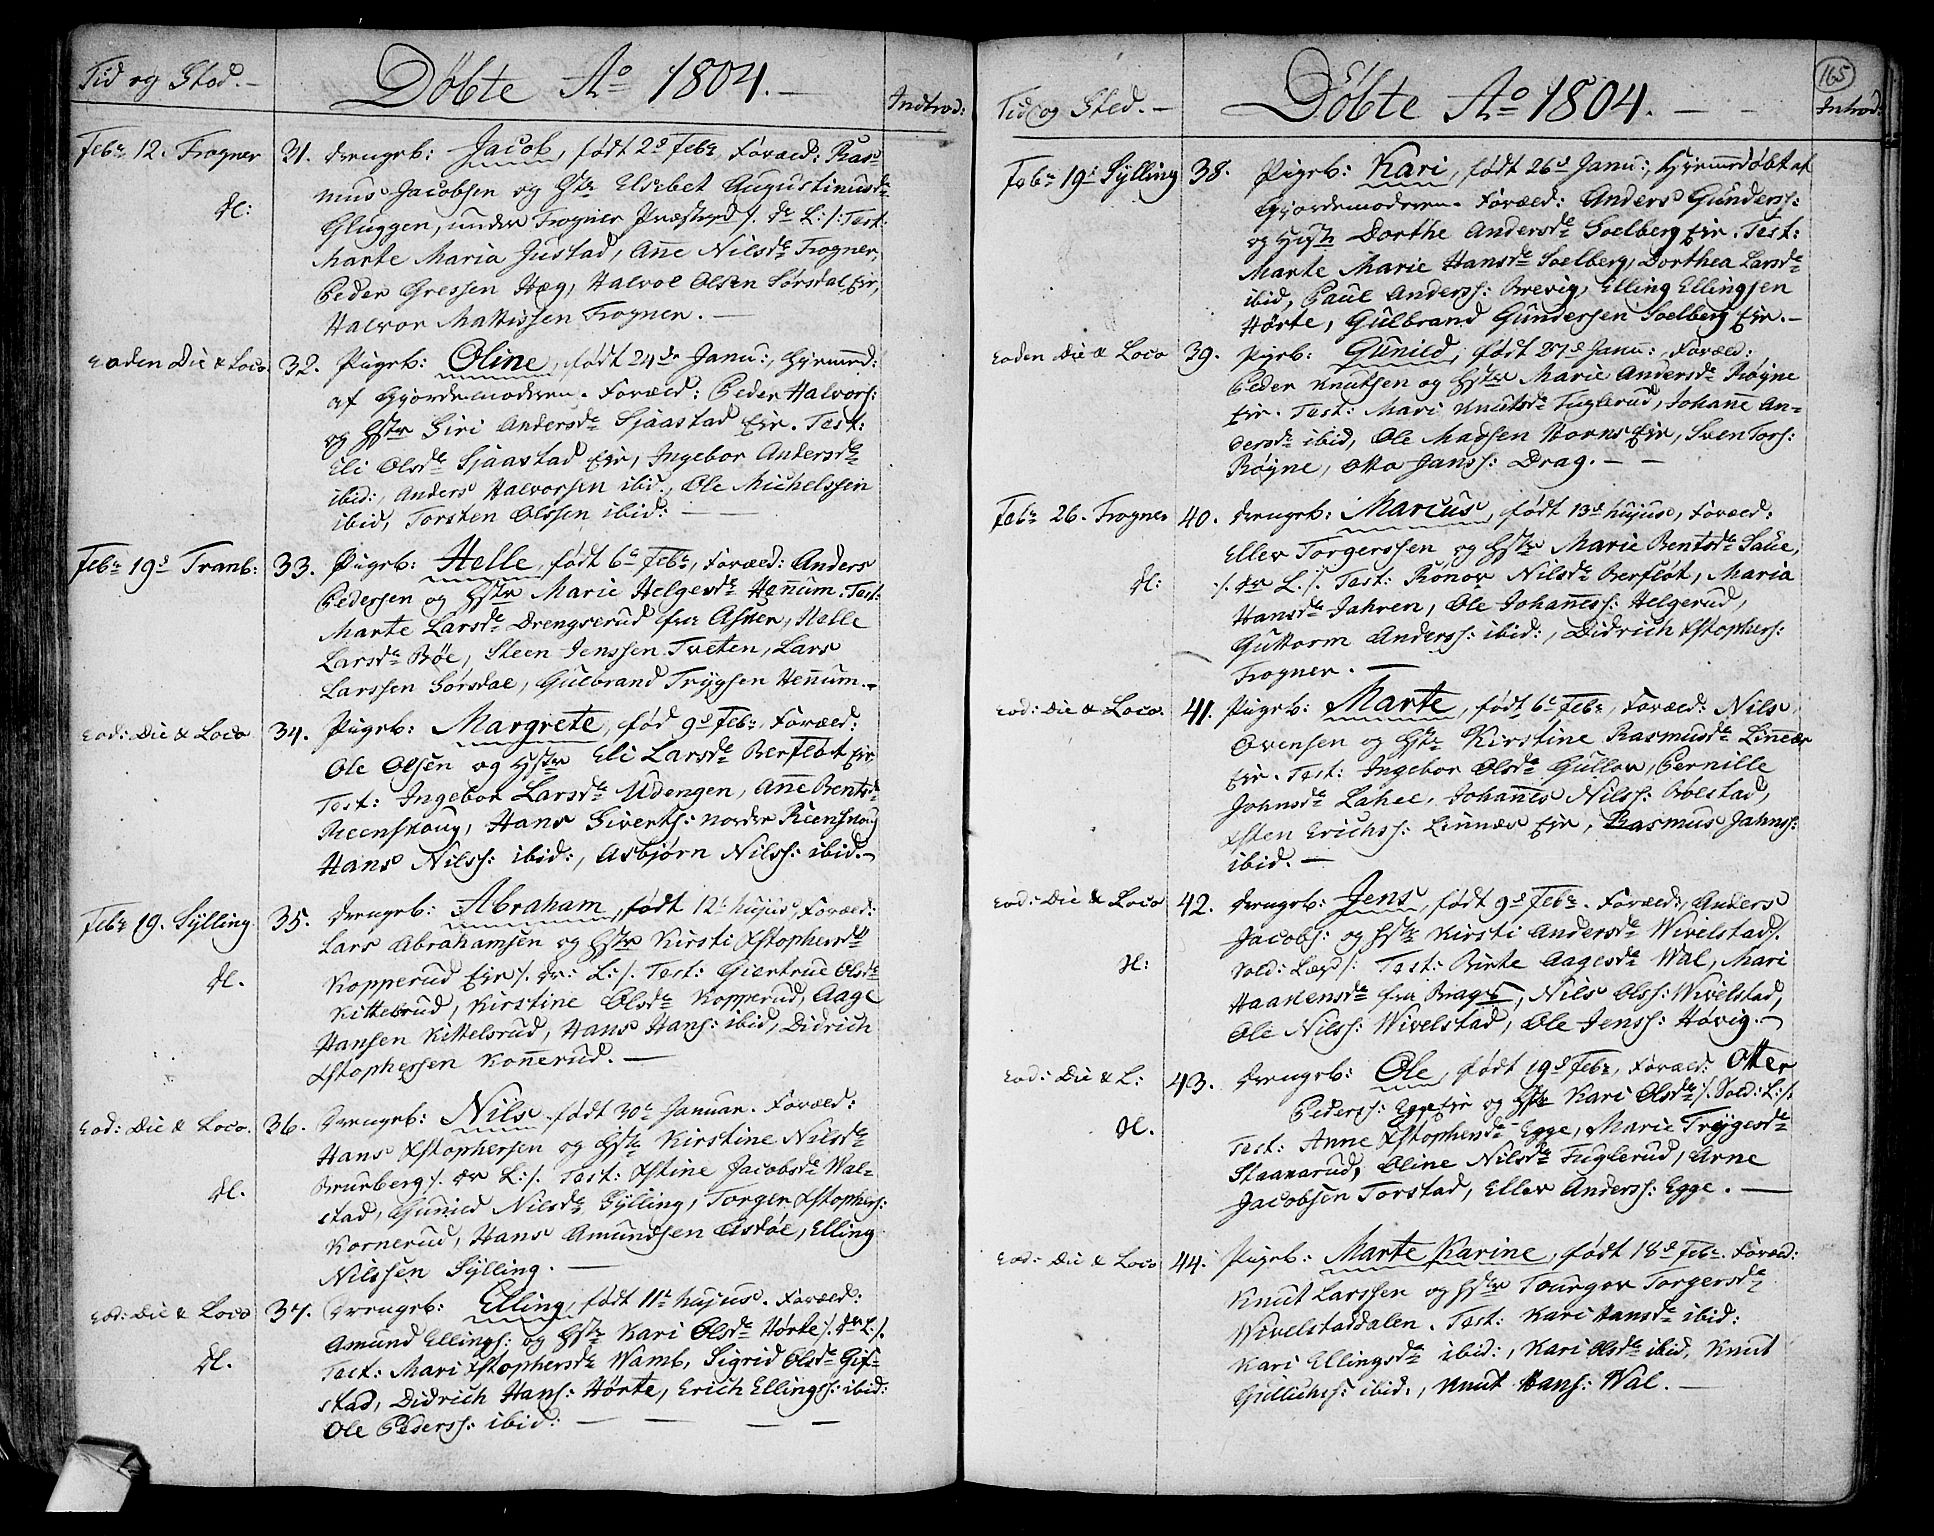 Tid og Sted. –
Døbte Aº 1804. –
Introd:
Febr. 12. Frogner
31. Drengeb: Jacob, født 2d Febr, Foræld: Ras-
mus Jacobsen og Hstr Elsebet Augustinusdr
Gluggen, under Frogner Præstegd /. dr L: /: Test:
H:
Marte Maria Justad, Anne Nilsdr Frogner,
Peder Gressen Hæg, Halvol Olsen Sørsdal Eir,
Halvor Mattissen Frogner. –
eoden Die & Loco
32. Pigeb: Oline, født 24de Janu:, hjemmed:
af Gjordemoderen. Foræld: Peder Halvors:
og Hstr Siri Andersdr Sjaastad Eir. Test:
Eli Olsdr Sjaastad Eir, Ingebor Andersdr
ibid:, Anders Halvorsen ibid., Ole Michelssen
ibid, Torsten Olssen ibid: –
Febr 19d Tranb:
33. Pigeb: Helle, født 6te Febr, Foræld: Anders
Pedersen og Hstr Marie Helgesdr Hennum. Test:
Marte Larsdr Drengsrud fra Asker, Helle
Larsdr Bøe, Steen Jenssen Tveten, Lars
Larssen Sørsdal, Gulbrand Trygsen Hennum. –
eod: Die & Loco
34. Pigeb: Margrete, fød 9d Febr, Foræld:
Ole Olsen og Hstr Eli Larsdr Berfløt Eir
Test: Ingebor Larsdr Udengen, Anne Bentsdr
Reenskoug, Hans Siverts: nordre Reenskoug
Hans Nilss: ibid:, Asbjørn Nilss: ibid. –
Febr 19. Sylling
35. Drengeb: Abraham, født 12te hujus, Foræld:
Lars Abrahamsen og Hstr Kirsti Xstophersdr
H.
Kopperud Eir /. dr: L: /. Test: Giertrue Olsdr
Kittelsrud, Kirstine Olsdr Kopperud, Aage
Hansen Kittelsrud, Hans Hans: ibid, Didrich
Xstophersen Konnerud. –
eod: Die & Loco.
36. Drengeb: Nils, født 30te Januar. Foræld:
Hans Xstophersen og Hstr Kirstine Nilsdr
H.
Brurberg /. dr L: /. Test: Xstine Jacobsdr Wal-
stad, Gunild Nilsdr Sylling, Torger Xstophers:
Kornerud, Hans Amundsen Asdøl, Elling
Nilssen Sylling. –
eod: Die & Loco
37. Drengeb: Elling, født 11te hujus. Foræld:
Amund Ellings: og Hstr Kari Olsdr Hørte /. dr L: /.
H.
Test: Mari Xstophersdr Wamb, Sigrid Olsdr Gif-
stad, Didrich Hans: Hørte, Erich Ellingss: ibid:
Ole Pederss: ibid: –
165
Tid og Sted. –
Døbte Aº 1804. –
Introd:
Febr 19d Sylling
38. Pigeb: Kari, født 26d Janu:, hjemmedøbt af
Gjordemoderen. Foræld: Anders Gunderss:
og Hstr Dorthe Andersdr Soelberg Eir. Test:
Marte Marie Hansdr Soelberg, Dorthea Larsdr
ibid, Paul Anderss: Brevig, Elling Ellingsen
Hørte, Gulbrand Gundersen Soelberg Eir. –
eoden Die & Loco
39. Pigeb: Gunild, født 27d Janu:, Foræld:
Peder Knutsen og Hstr Marie Andersdr Røgne
Eir. Test: Mari Knutsdr Fuglerud, Johanne An-
dersdr ibid, Ole Madsen Horns Eir, Sven Tors:
Røgne, Otto Janss: Drag. –
Febr 26. Frogner
40. Drengeb: Marcus, født 13d hujus, Foræld:
Ellev Torgerssen og Hstr Marie Bentsdr Saue,
H:
/. dr L: /. Test: Ronov Nilsdr Berfløt, Maria
Hansdr Jahren, Ole Johanness: Helgerud,
Guttorm Anderss: ibid:, Didrich Xstophers:
Frogner. –
eod: Die & Loco.
41. Pigeb: Marte, født 6te Febr, Foræld: Nils
Ovensen og Hstr Kirstine Rasmusdr Linnæs
Eir. Test: Ingebor Olsdr Gullov, Pernille
Johnsdr Lahel, Johannes Nilss: Bølstad,
Xsten Erichss: Linnæs Eir, Rasmus Jahns:
ibid. –
eod: Die & Loco
42. Drengeb: Jens, født 9d Febr. Foræld:, Anders
Jacobs: og Hstr Kirsti Andersdr Wivelstad /.
H:
Sold: Lægd /: Test: Birte Aagesdr Wal, Mari
Haakensdr fra Brags, Nils Olss: Wivelstad,
Ole Nilss: Wivelstad, Ole Jenss: Høvig. –
eod: Die & L:
43. Drengeb: Ole, født 19d Febr, Foræld: Otter
Pederss: Egge Eir og Hstr Kari Olsdr /. Sold: L: /.
H.
Test: Anne Xstophersdr Egge, Marie Trygesdr
Staaxarud, Oline Nilsdr Fuglerud, Arne
Jacobsen Torstad, Ellev Anderss: Egge. –
eod: Die & Loco
44. Pigeb: Marte Karine, født 18d Febr. Foræld:
Knut Larssen og Hstr Tourgor Torgersdr
Wivelstaddalen. Test: Kari Hansdr ibid:
Kari Ellingsdr ibid:, Kari Olsdr ibid, Knut
Gulliks: ibid:, Knut Hans: Wal. –